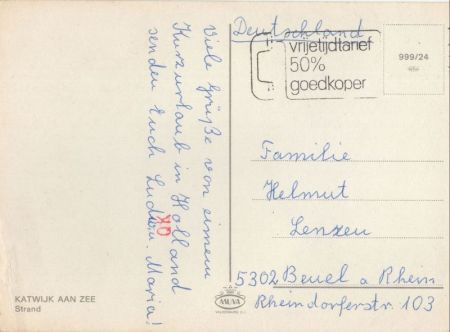 Viele Grüße von einem
Kurzurlaub in Holland
senden Euch Ludwin Maria!
Deutschland
vrijetijdtarief
50%
goedkoper
999/24
Familie
Helmut
Lenzen
5302 Beuel a Rhein
Rheindorferstr 103
KATWIJK AAN ZEE
Strand
MUVA